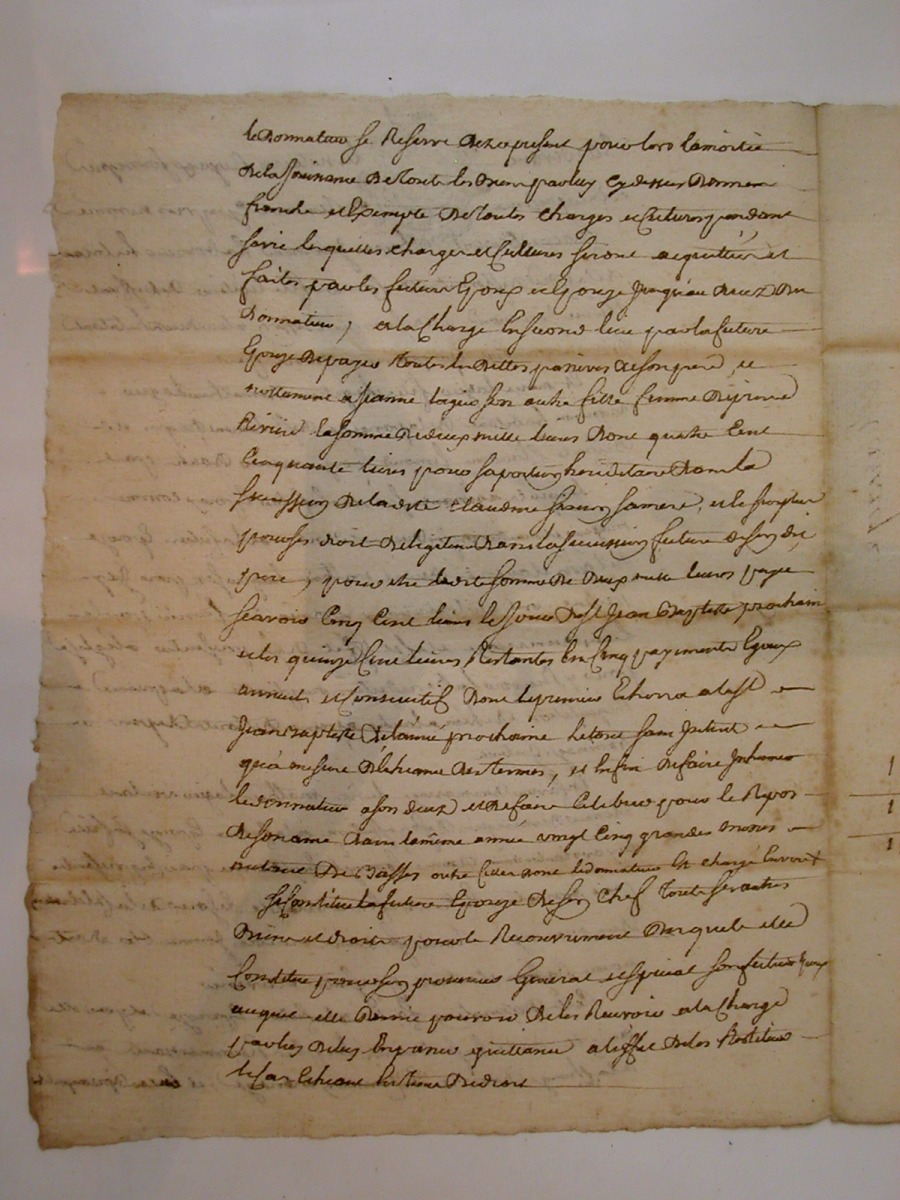 le Donnateur se Reserve Deze present pour lors la moitié
De la Jouissance De toute les Biens par luy cy dessus Donnés
franche et Exempte De toutes charges et Cultures pendant
sa vie lesquelles charges et Cultures seront acquittées et
faites par les futurs Epoux et Epouze Jusqu'au decez Du
Donnateur, et a la Charge En second lieu par la future
Epouze De payer toutes les Dettes passives De son pere, et
nottament a Jeanne son autre fille femme De pierre
la somme De deux mille livres Dont quatre Cent
Cinquante livres pour sa portion hereditaire Dans la
succession De la dite Claudine sa mere, et le surplus
pour ses droit De legitime Dans la succession future De son dit
pere, pour etre la dite somme De Deux mille livres payée
sçavoir Cinq Cent livres le Jour De St Jean Baptiste prochain
et les quinze Cent livres Restantes En Cinq payements Egaux
annuels et Consecutifs Dont le premier Echerra a la St
Jean Baptiste De l'année prochaine le tout sans Interet
qu'a mesure De l'echeance Des termes, et Enfin De faire Inhumer
le donnateur a son decez et De faire Celebrer pour le Repos
De son ame Dans la même année vingt Cinq grandes messes
autant De Basses outre Celles Dont le donnateur Est chargé Envers
Se Constitue la future Epouze De son Chef Toute ses autres
Biens et droits pour le Recouvrement Desquels elle
Constitue pour son procureur General et special son futur Epoux
auquel elle Donne pouvoir De les Recevoir a la Charge
par luy De les En passer quittance a l'effet De les Restituer
le Cas Echeant De droit